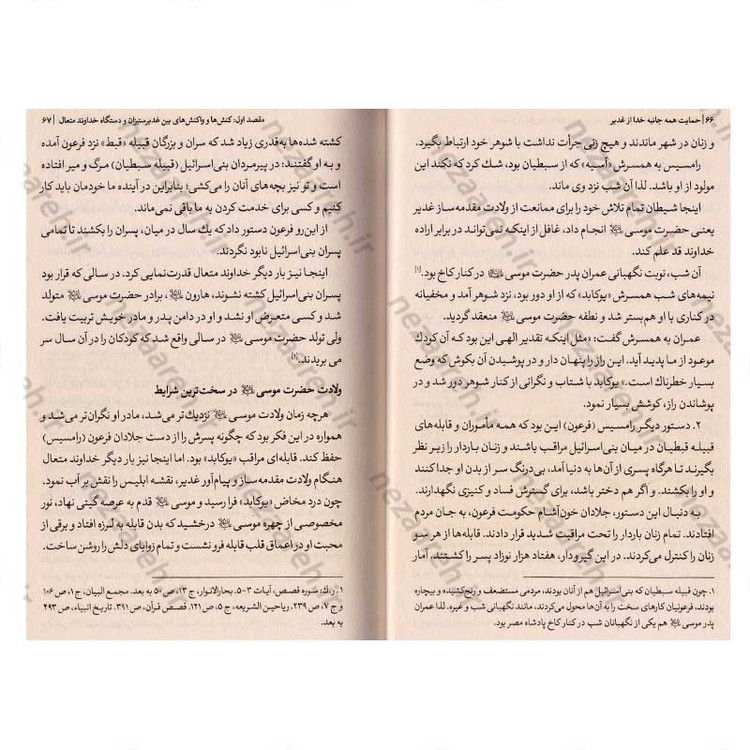 ۶۶ | حمایت همه جانبه خدا از غدیر
و زنان در شهر ماندند و هیچ زنی جرأت نداشت با شوهر خود ارتباط بگیرد.
رامسیس به همسرش «آسیه» که از سبطیان بود، شك کرد که نکند این
مولود از او باشد. لذا آن شب نزد وی ماند.
اینجا شیطان تمام تلاش خود را برای ممانعت از ولادت مقدمه‌ساز غدیر
یعنی حضرت موسی انجام داد، غافل از اینکه نمی‌تواند در برابر اراده
خداوند قد علم کند.
آن شب، نوبت نگهبانی عمران پدر حضرت موسی در کنار کاخ بود.[۱]
نیمه‌های شب همسرش «یوکابد» که از او دور بود، نزد شوهر آمد و مخفیانه
در کناری با او هم‌بستر شد و نطفه حضرت موسی منعقد گردید.
عمران به همسرش گفت: «مثل اینکه تقدیر الهی این بود که آن کودك
موعود از ما پدید آید. این راز را پنهان دار و در پوشیدن آن بکوش که وضع
بسیار خطرناك است.» یوکابد با شتاب و نگرانی از کنار شوهر دور شد و در
پوشاندن راز، کوشش بسیار نمود.
۲. دستور دیگر رامسیس (فرعون) این بود که همه مأموران و قابله‌های
قبیله قبطیان در میان بنی‌اسرائیل مراقب باشند و زنان باردار را زیر نظر
بگیرند تا هرگاه پسری از آن‌ها به دنیا آمد، بی‌درنگ سر از بدن او جدا کنند
و او را بکشند. و اگر هم دختر باشد، برای گسترش فساد و کنیزی نگهدارند.
به دنبال این دستور، جلادان خون‌آشام حکومت فرعون، به جان مردم
افتادند. تمام زنان باردار را تحت مراقبت شدید قرار دادند. قابله‌ها از هر سو
زنان را کنترل می‌کردند. در این گیرودار، هفتاد هزار نوزاد پسر را کشتند. آمار
۱. چون قبیله سبطیان که بنی‌اسرائیل هم از آنان بودند، مردمی مستضعف و رنج‌کشیده و بیچاره
بودند، فرعونیان کارهای سخت را به آن‌ها محول می‌کردند، مانند نگهبانی شب و غیره. لذا عمران
پدر موسی هم یکی از نگهبانان شب در کنار کاخ پادشاه مصر بود.
مقصد اول: کنش‌ها و واکنش‌های بین غدیرستیزان و دستگاه خداوند متعال | ۶۷
کشته شده‌ها به‌قدری زیاد شد که سران و بزرگان قبیله «قبط» نزد فرعون آمده
و به او گفتند: در پیرمردان بنی‌اسرائیل (قبیله سبطیان) مرگ و میر افتاده
است و تو نیز بچه‌های آنان را می‌کشی؛ بنابراین در آینده ما خودمان باید کار
کنیم و کسی برای خدمت کردن به ما باقی نمی‌ماند.
از این‌رو فرعون دستور داد که یك سال در میان، پسران را بکشند تا تمامی
پسران بنی‌اسرائیل نابود نگردند.
اینجا نیز بار دیگر خداوند متعال قدرت‌نمایی کرد. در سالی که قرار بود
پسران بنی‌اسرائیل کشته نشوند، هارون، برادر حضرت موسی متولد
شد و کسی متعرض او نشد و او در دامن پدر و مادر خویش تربیت یافت.
ولی تولد حضرت موسی در سالی واقع شد که کودکان را در آن سال سر
می بریدند.[۱]
ولادت حضرت موسی در سخت‌ترین شرایط
هرچه زمان ولادت موسی نزدیك‌تر می‌شد، مادر او نگران‌تر می‌شد و
همواره در این فکر بود که چگونه پسرش را از دست جلادان فرعون (رامسیس)
حفظ کند. قابله‌ای مراقب «یوکابد» بود. اما اینجا نیز بار دیگر خداوند متعال
هنگام ولادت مقدمه‌ساز و پیام‌آور غدیر، نقشه ابلیس را نقش بر آب نمود.
چون درد مخاض «یوکابد» فرا رسید و موسی قدم به عرصه گیتی نهاد، نور
مخصوصی از چهره موسی درخشید که بدن قابله به لرزه افتاد و برقی از
محبت او در اعماق قلب قابله فرو نشست و تمام زوایای دلش را روشن ساخت.
۱. ر.ك: سوره قصص، آیات ۳-۵. بحارالانوار، ج ۱۳، ص ۵۰ به بعد. مجمع البیان، ج ۱، ص ۱۰۶
و ج ۷، ص ۲۳۹. ریاحین الشریعه، ج ۵، ص ۱۲۱. قصص قرآن، ص ۳۹۱. تاریخ انبیاء، ص ۴۹۳
به بعد.
nezaareh.ir